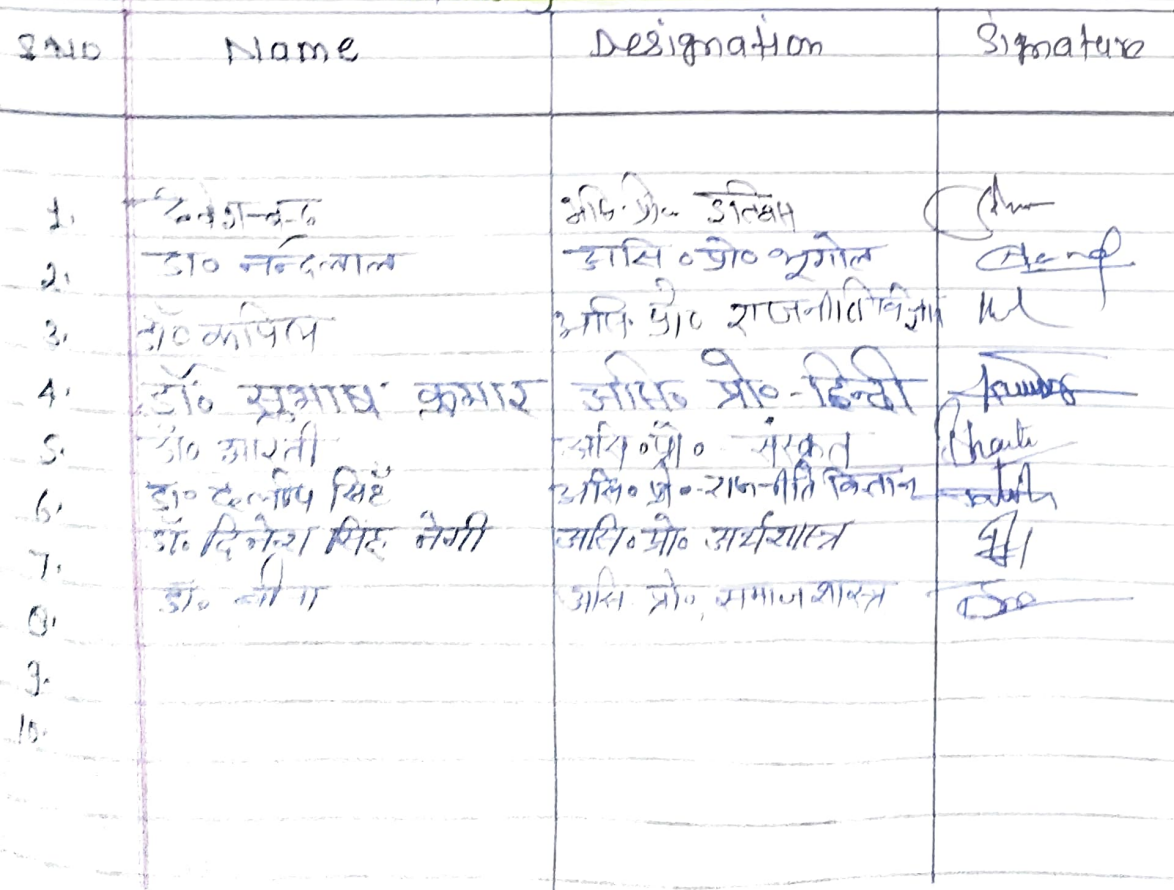 S.NO Name Designation Signature
1. असि. प्रो. इतिहास
2. डा० नन्दलाल असि०प्रो० भूगोल
3. डॉ० कपिल असि. प्रो० राजनीति विज्ञान
4. डॉ० सुभाष कुमार असि० प्रो०-हिन्दी
5. डॉ० आरती असि०प्रो० संस्कृत
6. डा० दलीप सिंह असि० प्रो०-राजनीति विज्ञान
7. डॉ. दिनेश सिंह नेगी असि०प्रो० अर्थशास्त्र
8. डॉ. असि. प्रो०, समाजशास्त्र
9.
10.